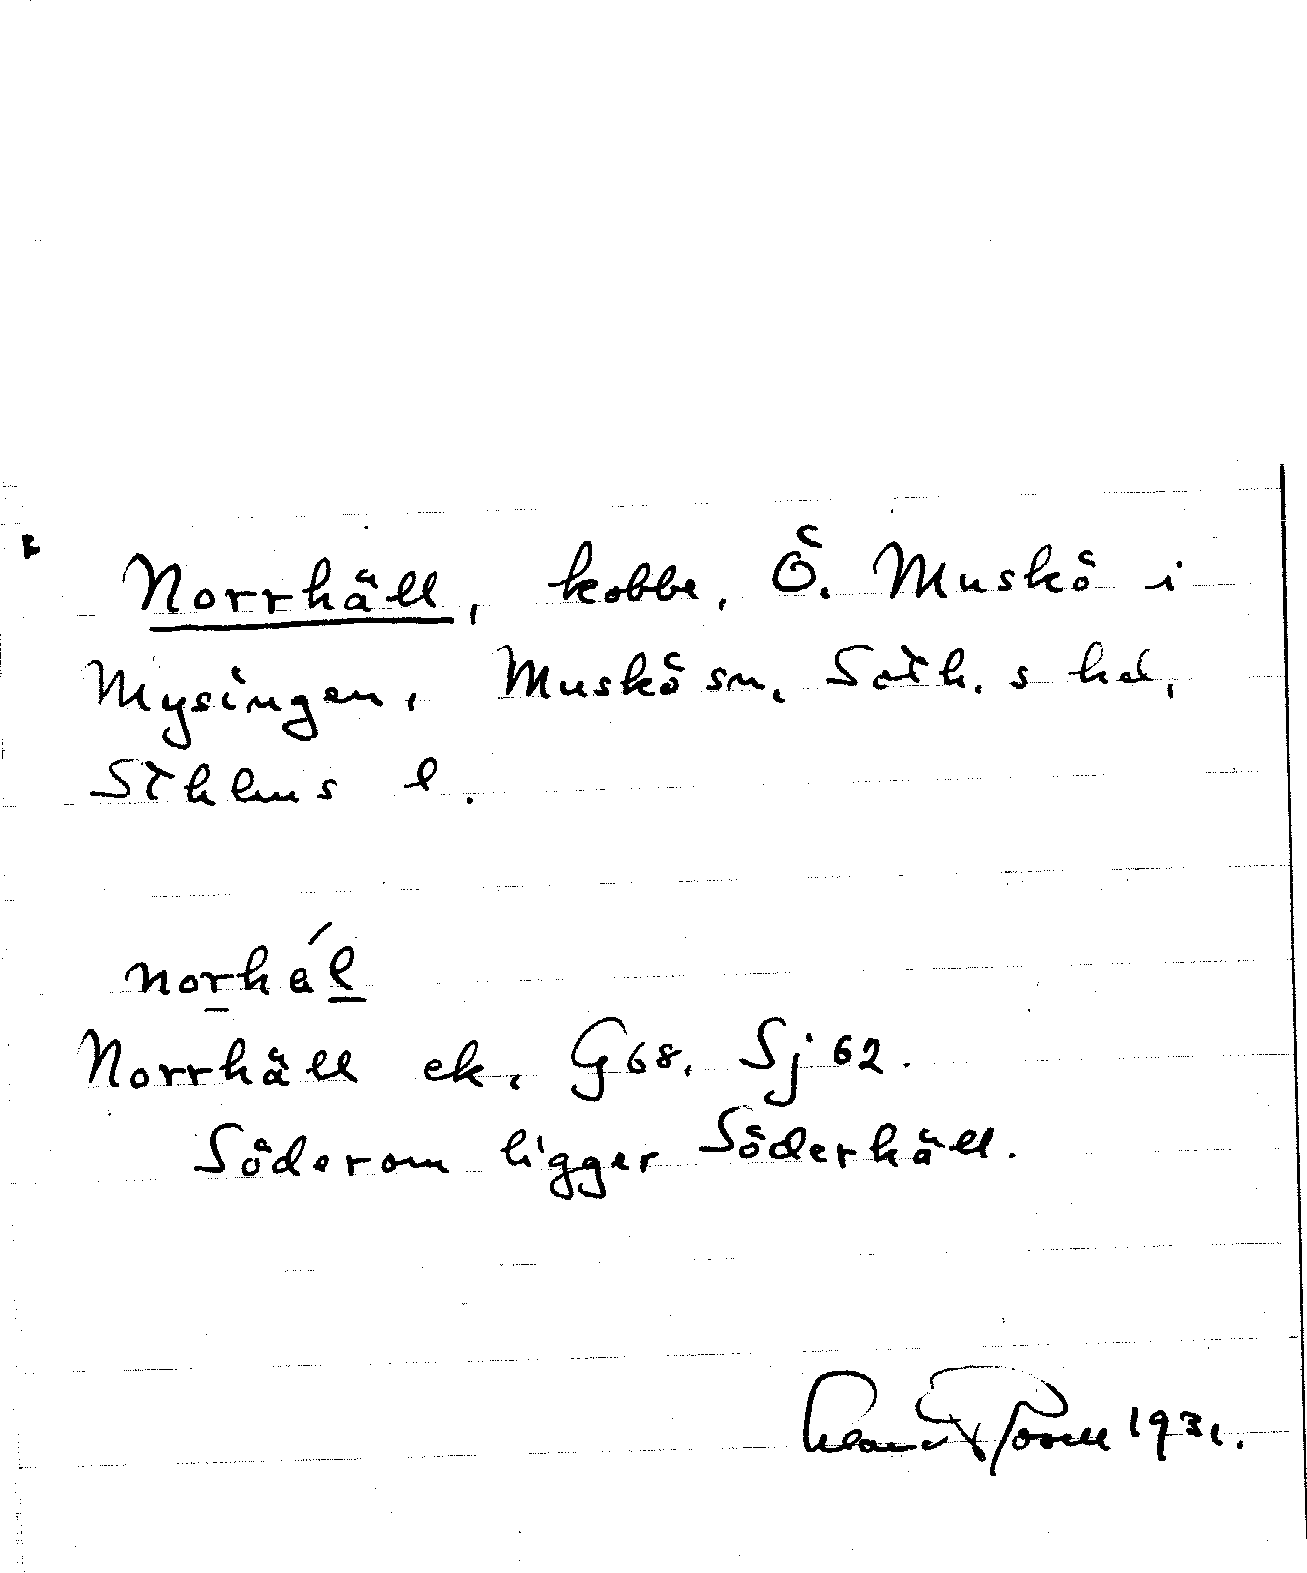 Norrhäll, kobbe, Ö. Muskö i
Mysingen, Muskö sn, Soth. s hd,
Sthlms l.
norhél
Norrhäll ek. G 68. Sj 62.
Söderom ligger Söderhäll.
1931.